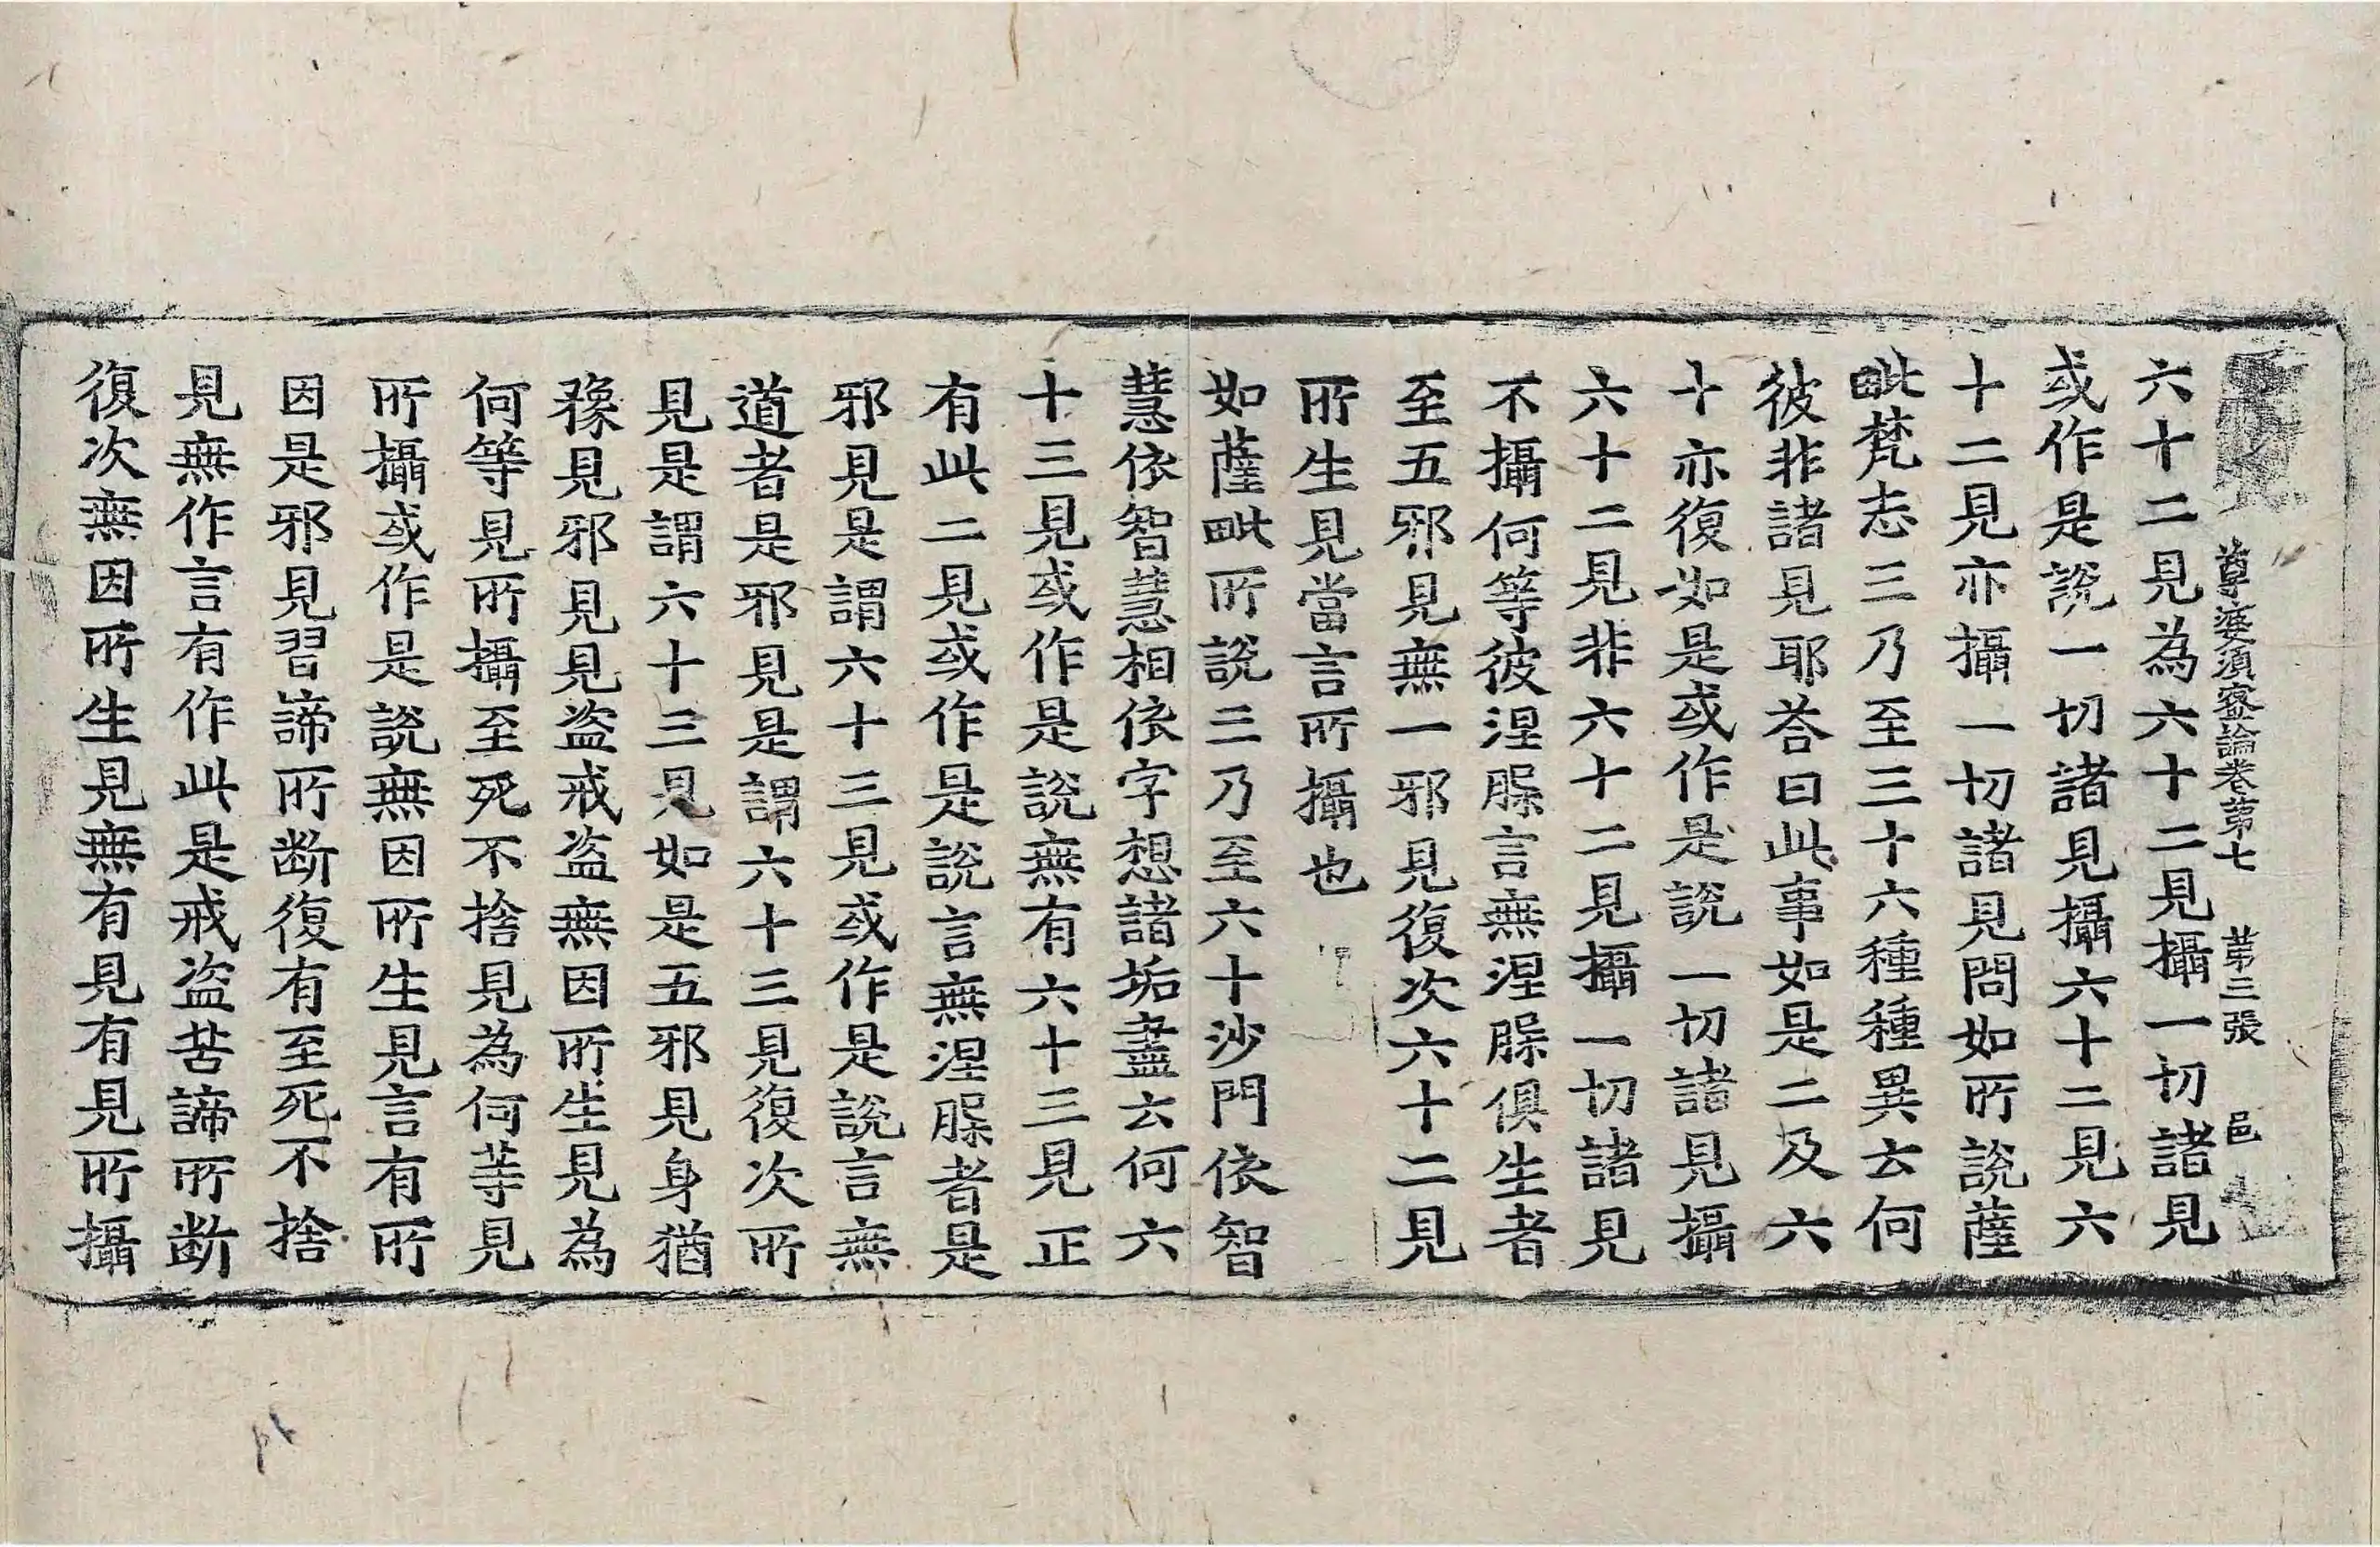 尊婆須蜜論卷第七　第三張　邑
六十二見為六十二見攝一切諸見
或作是說一切諸見攝六十二見六
十二見亦攝一切諸見問如所說薩
毗梵志三乃至三十六種種異云何
彼非諸見耶荅曰此事如是二及六
十亦復如是或作是說一切諸見攝
六十二見非六十二見攝一切諸見
不攝何等彼涅槃言無涅槃俱生者
至五邪見無一邪見復次六十二見
所生見當言所攝也
如薩毗所說三乃至六十沙門依智
慧依智慧相依字想諸垢盡云何六
十三見或作是說無有六十三見正
有此二見或作是說言無涅槃者是
邪見是謂六十三見或作是說言無
道者是邪見是謂六十三見復次所
見是謂六十三見如是五邪見身猶
豫見邪見見盜戒盜無因所生見為
何等見所攝至死不捨見為何等見
所攝或作是說無因所生見言有所
因是邪見習諦所断復有至死不捨
見無作言有作此是戒盜苦諦所断
復次無因所生見無有見有見所攝